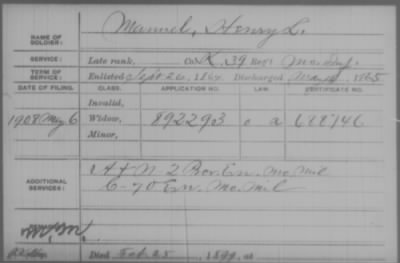 NAME OF SOLDIER: Manuel, Henry L.
SERVICE: Late rank, Co. K, 39 Reg't Mo. Inf.
TERM OF SERVICE: Enlisted Sept 26, 1864 Discharged 1865
DATE OF FILING. CLASS. APPLICATION NO. LAW. CERTIFICATE NO.
Invalid,
1908 May 6 Widow, 892293 o a 688746
Minor,
ADDITIONAL SERVICES: A & N 2 Prov. En. Mo. Mil
C-70 En. Mo. Mil
Died Feb. 25, 1899, at